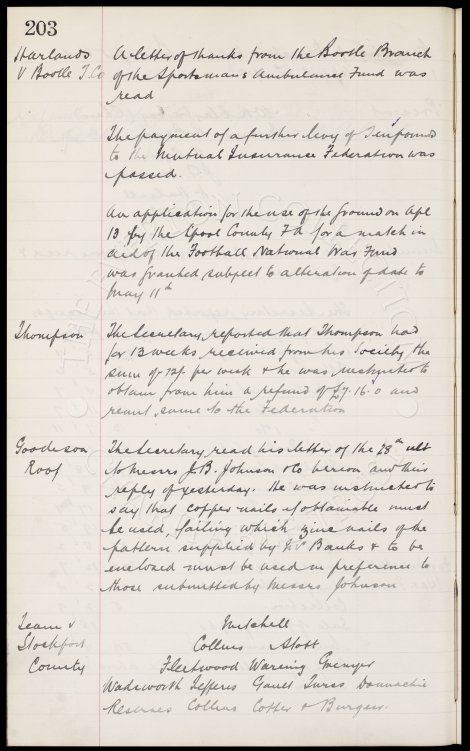 203
Harlands A letter of thanks from the Bootle Branch
V Bootle J. Co of the Sportsmans Ambulance Fund was
read
The payment of a further levy of Ten pounds
to the Mutual Insurance Federation was
passed.
An application for the use of the ground on Apl
13 by the Lpool County F.A. for a match in
aid of the Football National War Fund
was granted subject to alteration of date to
May 11th
Thompson The Secretary reported that Thompson had
for 13 weeks received from his Society the
sum of 12/- per week & he was instructed to
obtain from him a refund of £7.16.0 and
remit same to the Federation
Goodison The Secretary read his letter of the 28th ult
Roof to Messrs J.B. Johnson & Co and their
reply of yesterday. He was instructed to
say that copper nails if obtainable must
be used, failing which zinc nails of the
pattern supplied by Mr Banks & to be
enclosed must be used in preference to
those submitted by Messrs Johnson
Team v Mitchell
Stockport Collins Stott
County Fleetwood Wareing Grenyer
Wadsworth Jefferis Gault Donnachie
Reserves Collins Copper & Burgess.